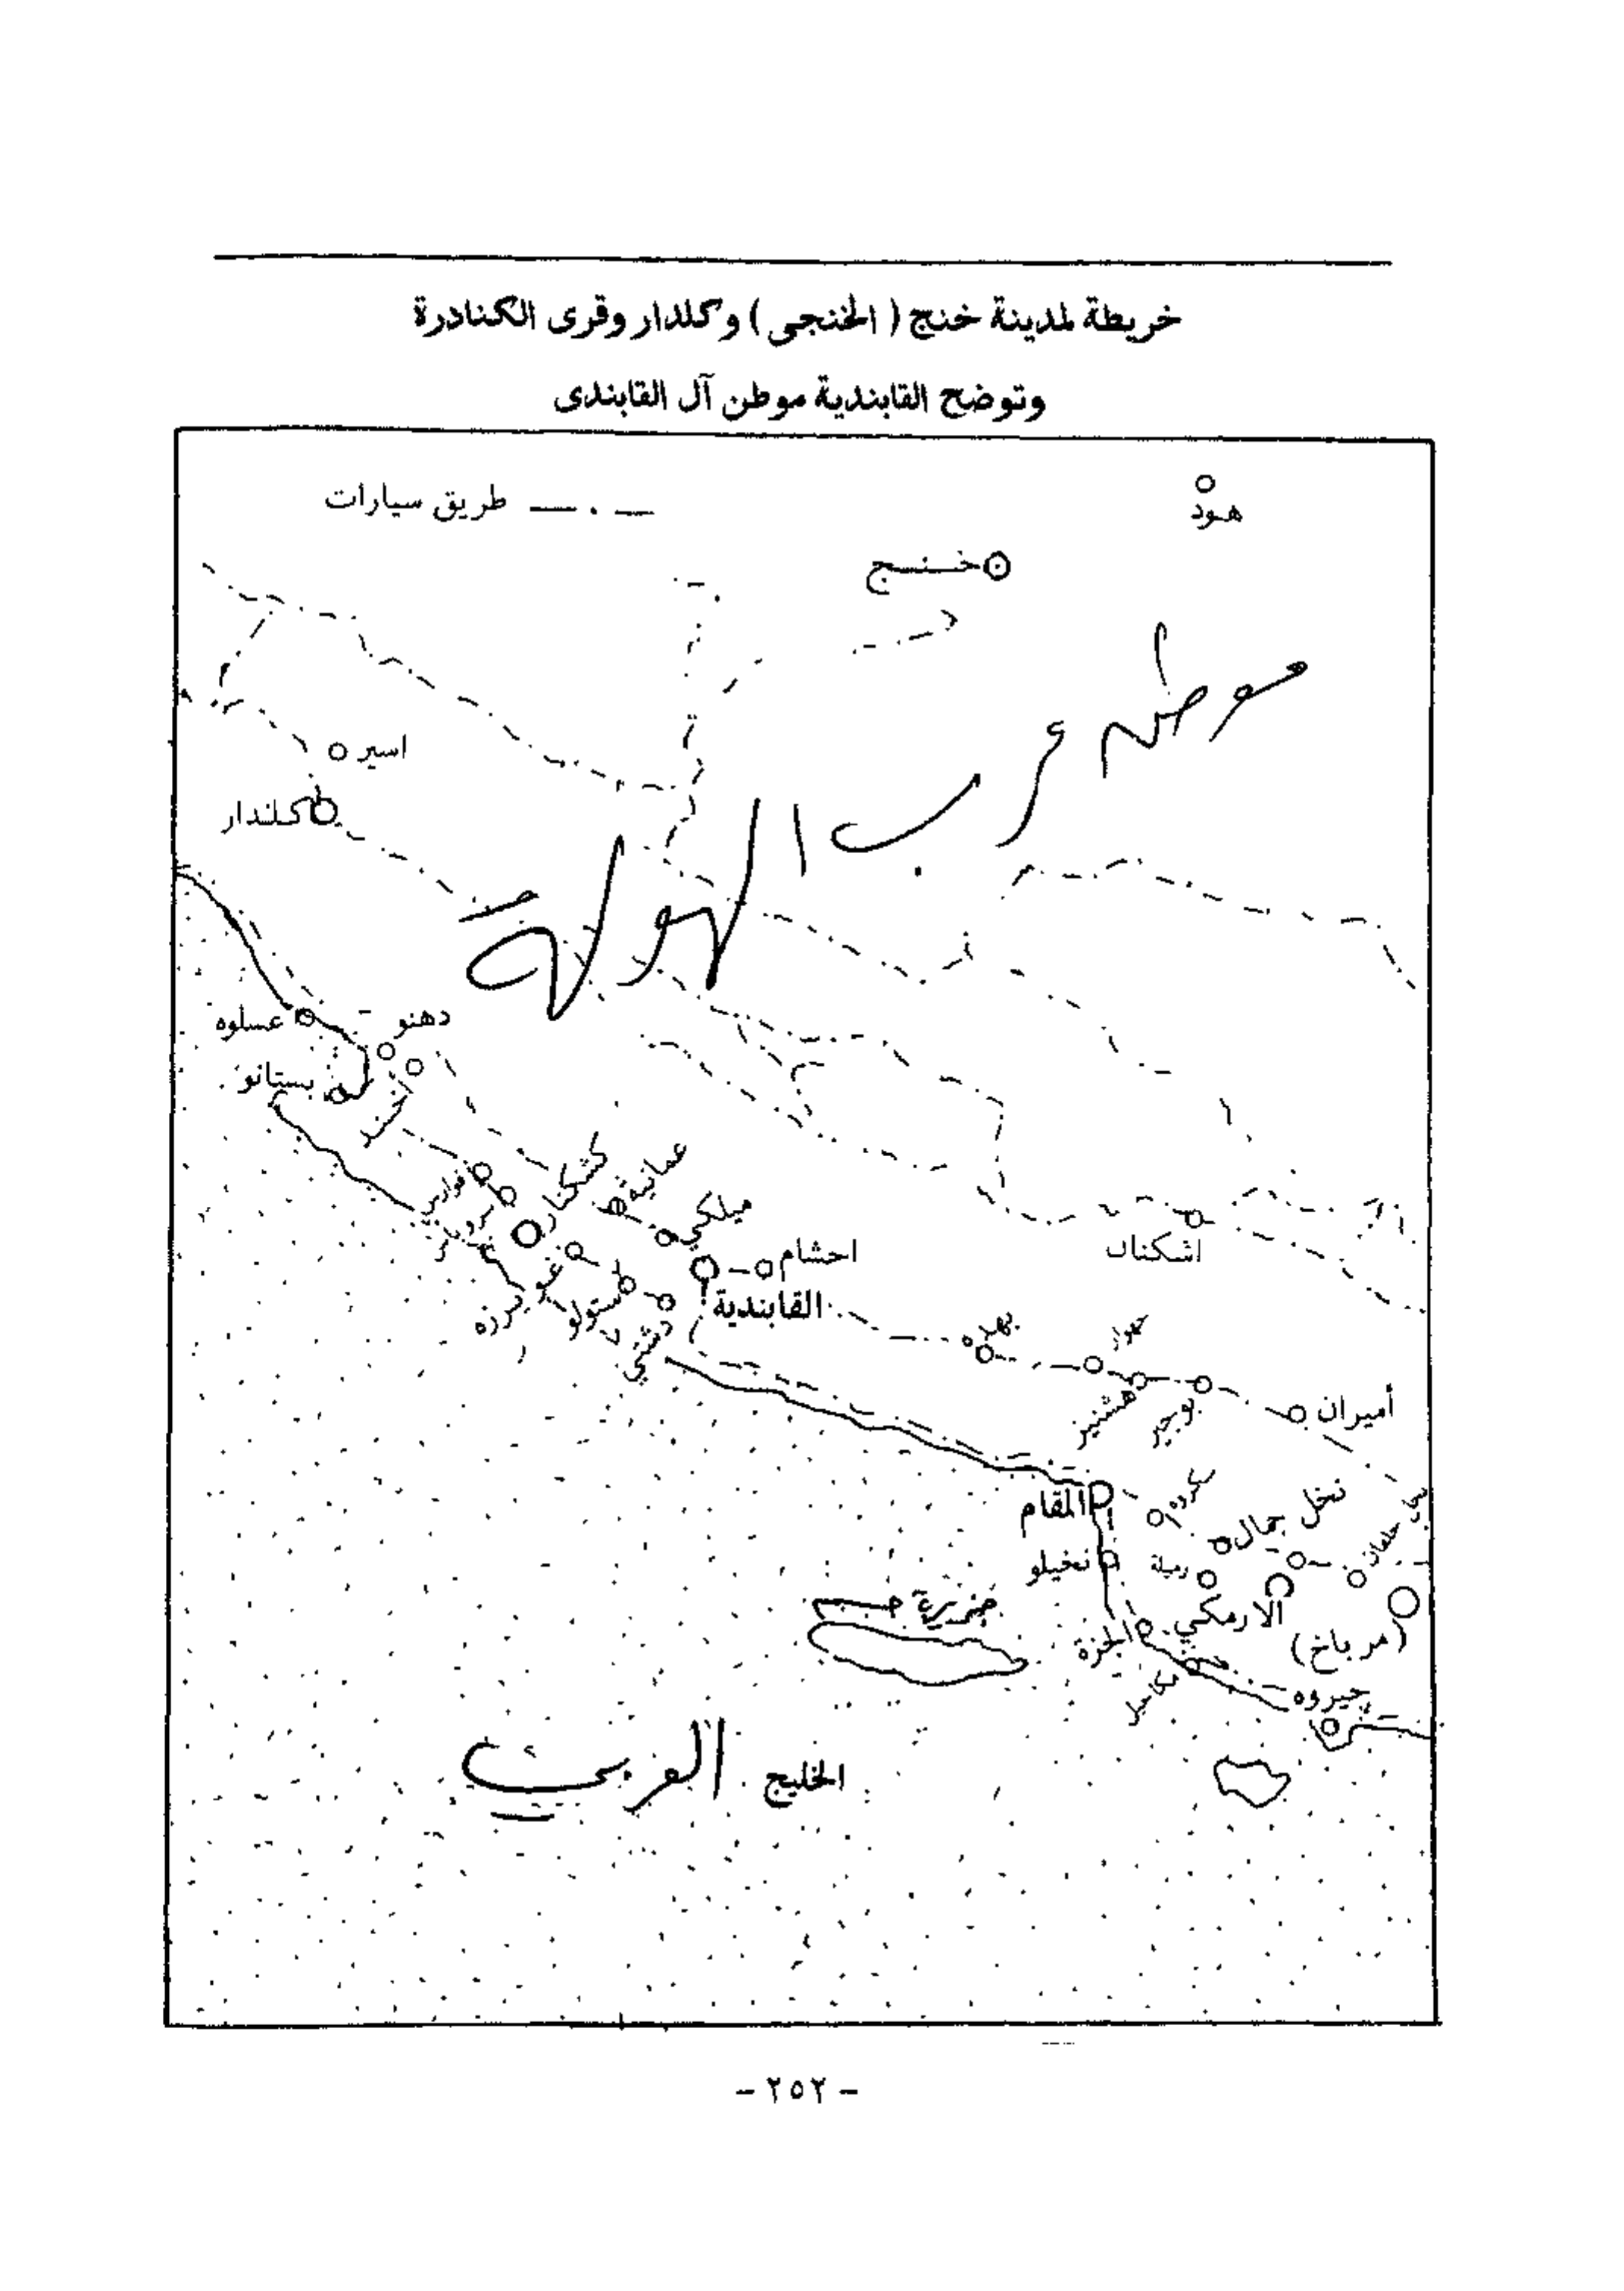 خريطة لمدينة خنج ( الخنجى ) وكلدار وقرى الكنادرة
وتوضح القابندية موطن آل القابندى
هود
طريق سيارات
خنج
موطن عرب الهولة
اسير
كلندار
دهنو
عسلوه
بستانو
كشكنار
عمانية
ميلكي
احشام
القابندية
اشكنان
بستولو
دشتي
بهده
هشنيز
بوجير
أميران
المقام
نخل جمال
نخيلو
رملة
جزيرة
الارمكي
(مر باخ)
الجزة
جيروه
الخليج العربي
- ٢٥٢ -